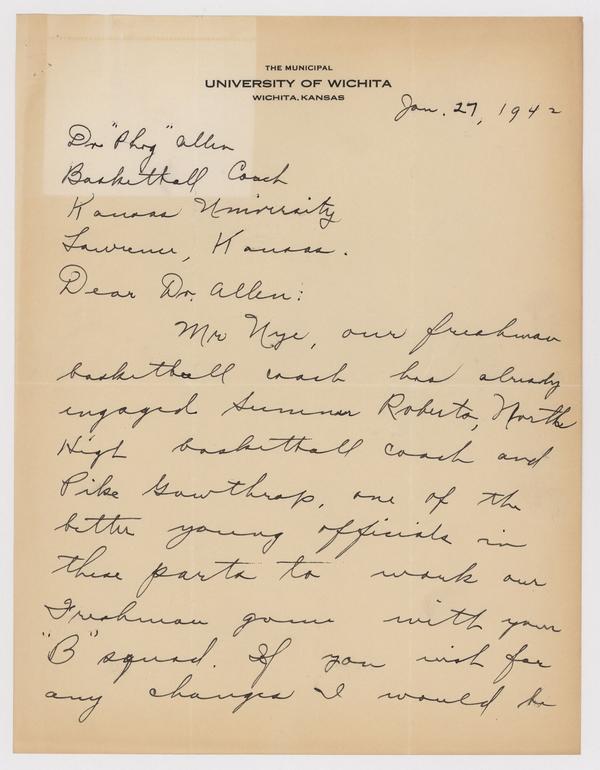 THE MUNICIPAL
UNIVERSITY OF WICHITA
WICHITA, KANSAS
Jan. 27, 1942
Dr "Phog" Allen
Basketball Coach
Kansas University
Lawrence, Kansas.
Dear Dr. Allen:
Mr Nye, our freshman
basketball coach has already
engaged Sumner Roberts, North
High basketball coach and
Pike Gawthrop, one of the
better young officials in
these parts to work our
Freshman game with your
"B" squad. If you wish for
any changes I would be